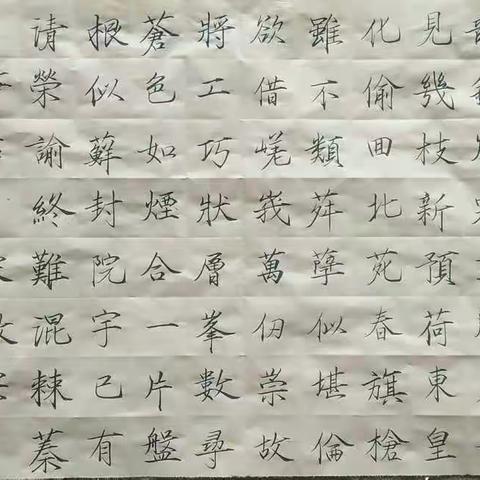 見幾枝新預荷東皇
化偷田北苑春旗槍
雖不類荈孽似堪倫
欲借嵯峩萬仞崇故
將工巧狀層峯數尋
蒼色如煙合一片盤
根似蘚封院宇已有
请榮諭終難混棘蓁